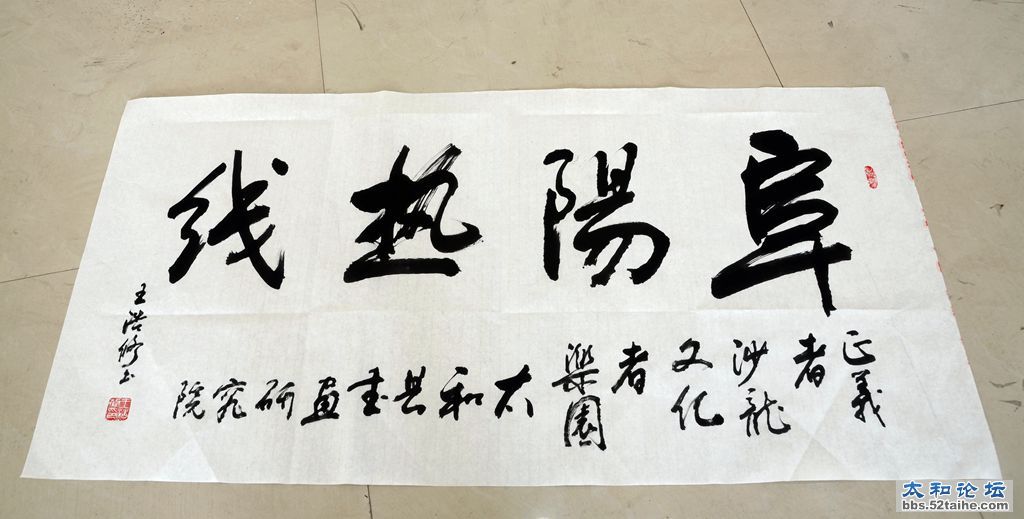 阜陽热线
正義
者
沙龍
文化
者
樂園
太和县书画研究院
王浩修书
太和论坛
bbs.52taihe.com